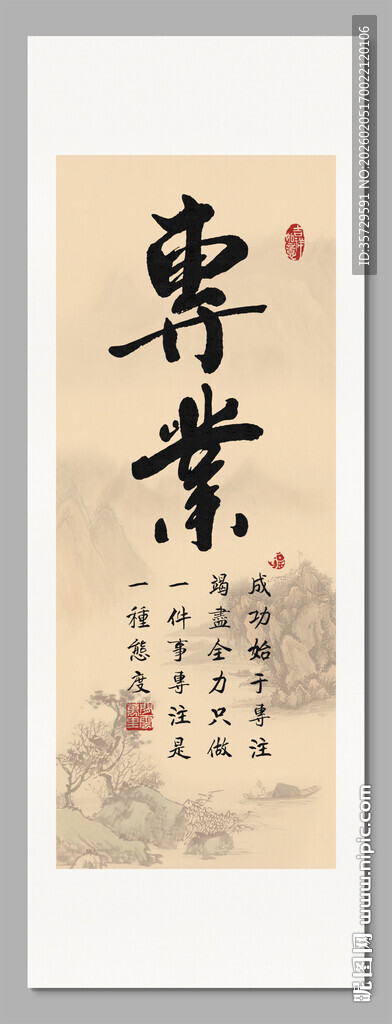 專業
成功始于專注
竭盡全力只做
一件事專注是
一種態度
ID:35729591 NO:20260205170022120106
昵图网 www.nipic.com